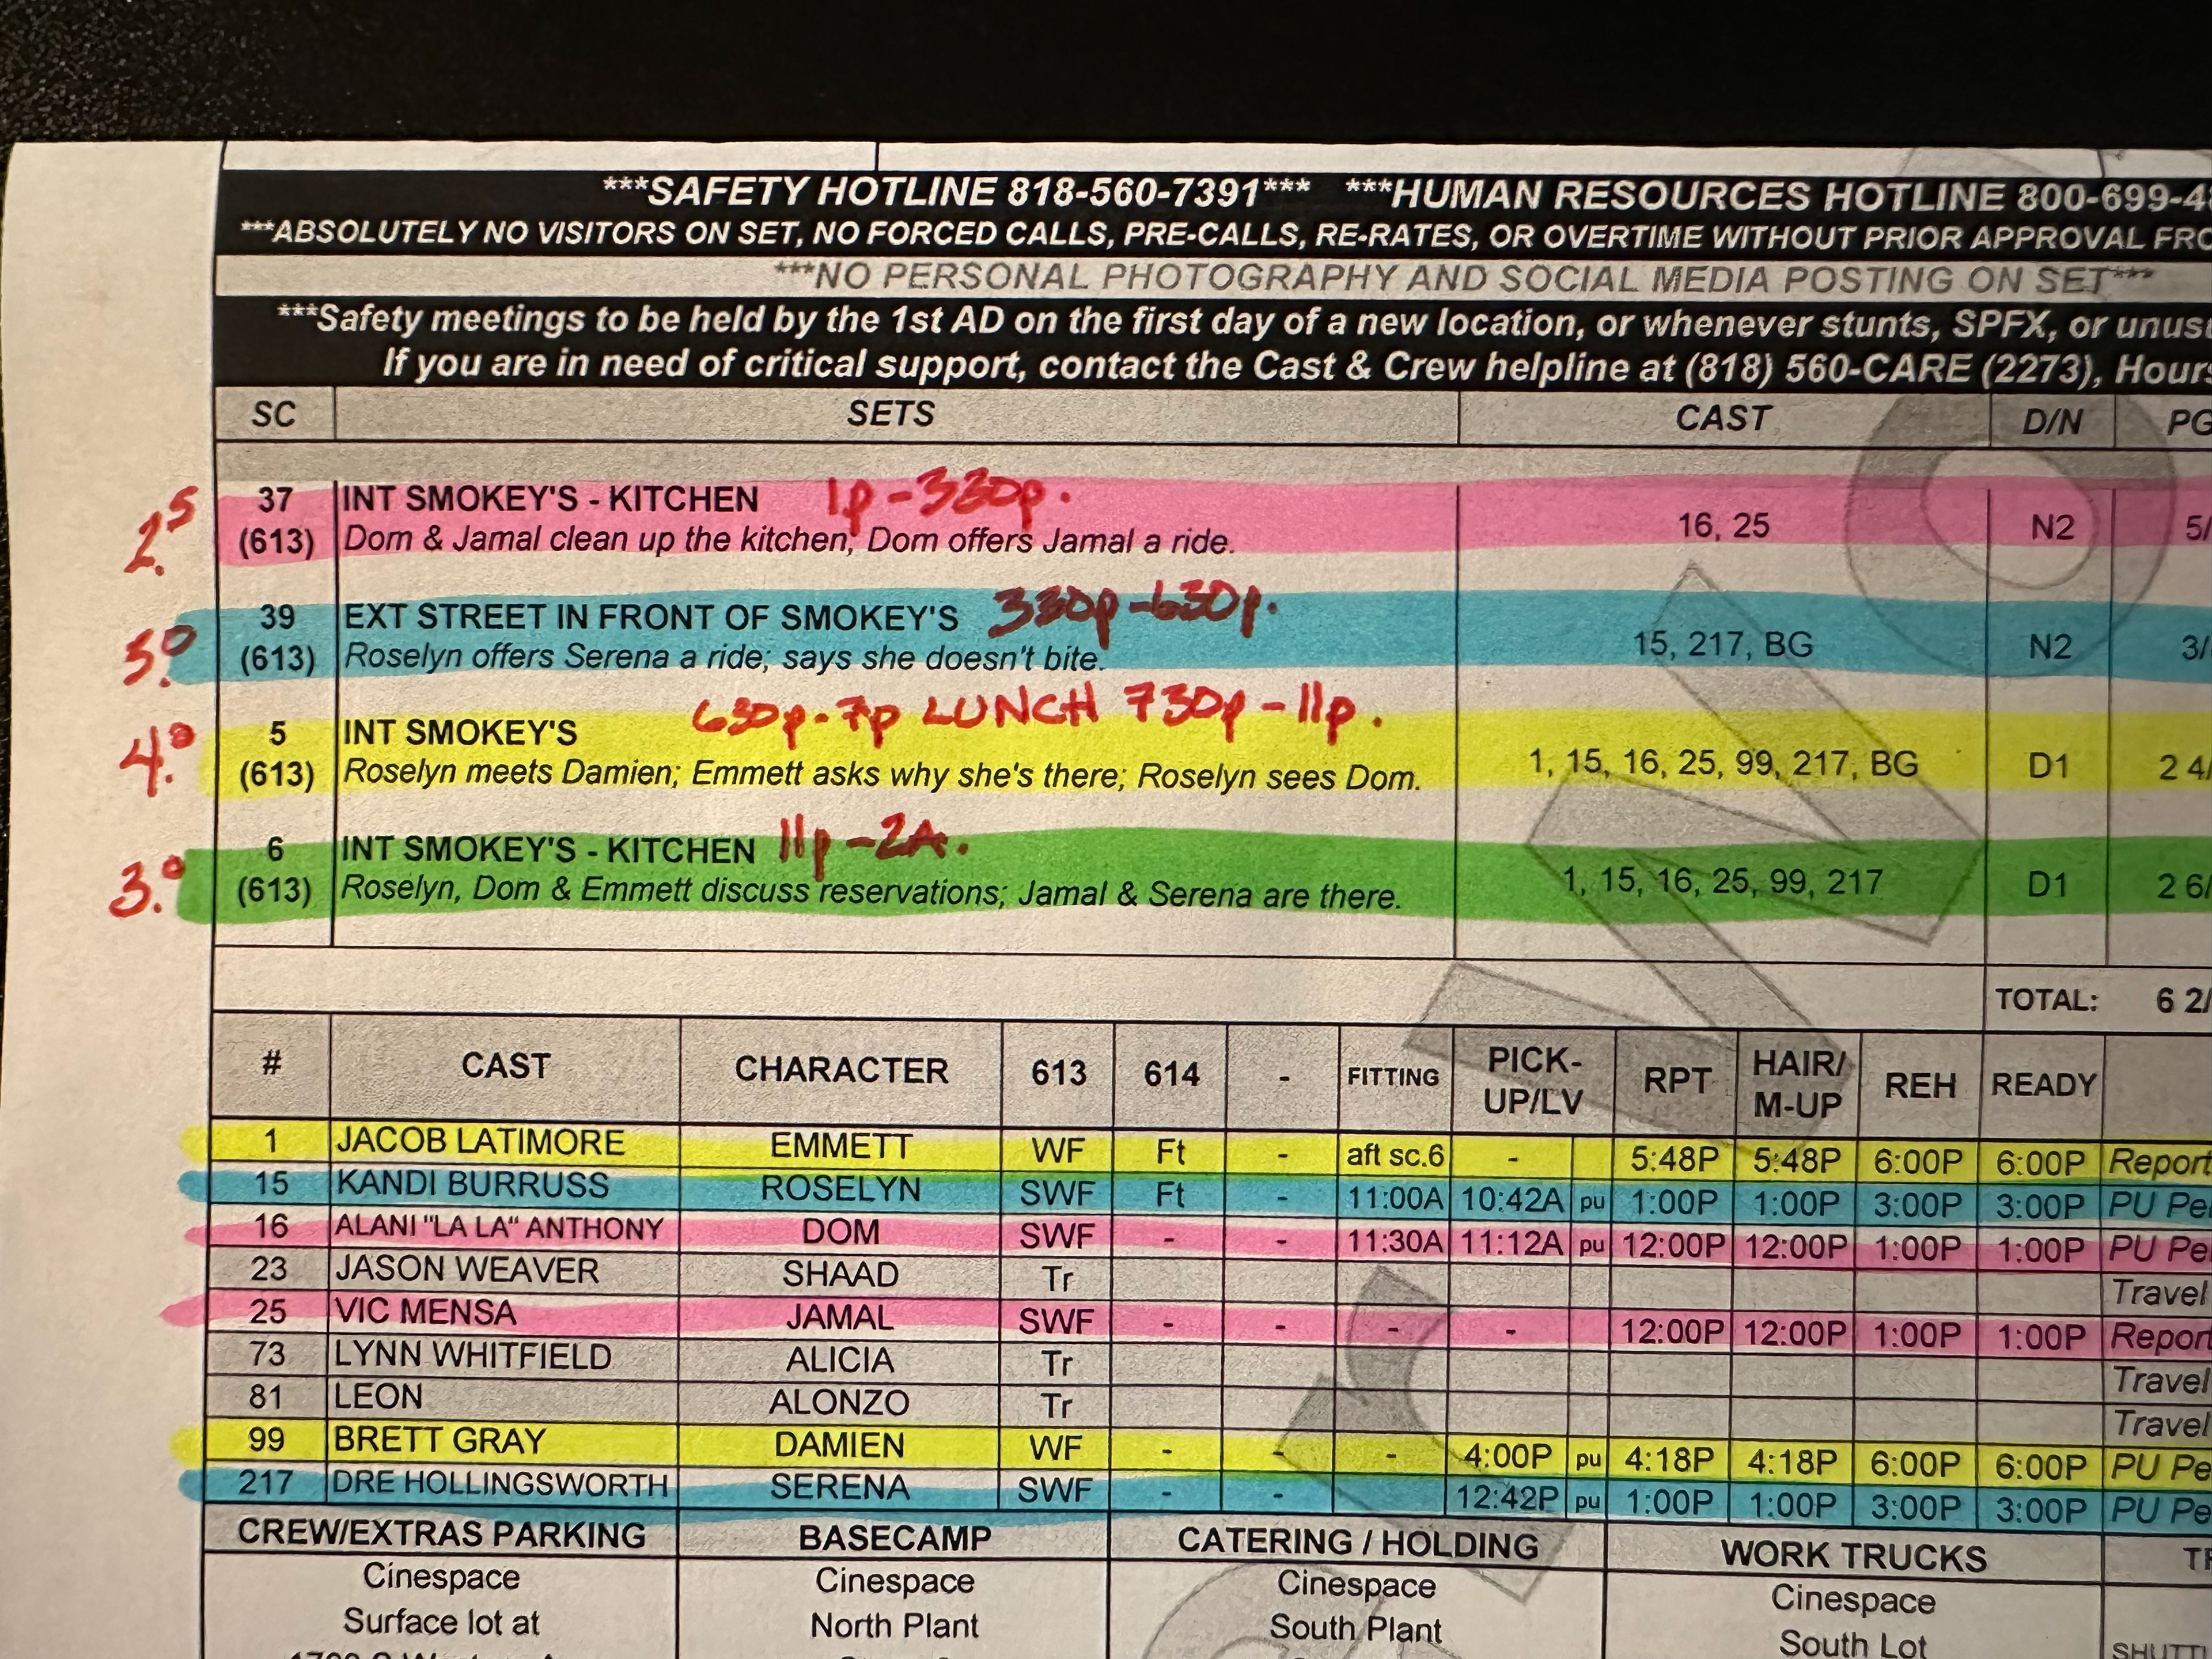 ***SAFETY HOTLINE 818-560-7391*** ***HUMAN RESOURCES HOTLINE 800-699-4
***ABSOLUTELY NO VISITORS ON SET, NO FORCED CALLS, PRE-CALLS, RE-RATES, OR OVERTIME WITHOUT PRIOR APPROVAL FRO
***NO PERSONAL PHOTOGRAPHY AND SOCIAL MEDIA POSTING ON SET***
***Safety meetings to be held by the 1st AD on the first day of a new location, or whenever stunts, SPFX, or unus
If you are in need of critical support, contact the Cast & Crew helpline at (818) 560-CARE (2273), Hours
SC SETS CAST D/N PG
37 INT SMOKEY'S - KITCHEN 1p-330p.
2.5 (613) Dom & Jamal clean up the kitchen; Dom offers Jamal a ride. 16, 25 N2 5/
39 EXT STREET IN FRONT OF SMOKEY'S 330p-630p.
3.0 (613) Roselyn offers Serena a ride; says she doesn't bite. 15, 217, BG N2 3/
630p-7p LUNCH 730p-11p.
5 INT SMOKEY'S
4.0 (613) Roselyn meets Damien; Emmett asks why she's there; Roselyn sees Dom. 1, 15, 16, 25, 99, 217, BG D1 2 4/
6 INT SMOKEY'S - KITCHEN 11p-2A.
3.0 (613) Roselyn, Dom & Emmett discuss reservations; Jamal & Serena are there. 1, 15, 16, 25, 99, 217 D1 2 6/
TOTAL: 6 2/
# CAST CHARACTER 613 614 - FITTING PICK-UP/LV RPT HAIR/M-UP REH READY
1 JACOB LATIMORE EMMETT WF Ft - aft sc.6 - 5:48P 5:48P 6:00P 6:00P Report
15 KANDI BURRUSS ROSELYN SWF Ft - 11:00A 10:42A pu 1:00P 1:00P 3:00P 3:00P PU Pe
16 ALANI "LA LA" ANTHONY DOM SWF - - 11:30A 11:12A pu 12:00P 12:00P 1:00P 1:00P PU Pe
23 JASON WEAVER SHAAD Tr Travel
25 VIC MENSA JAMAL SWF - - - - 12:00P 12:00P 1:00P 1:00P Report
73 LYNN WHITFIELD ALICIA Tr Travel
81 LEON ALONZO Tr Travel
99 BRETT GRAY DAMIEN WF - - - 4:00P pu 4:18P 4:18P 6:00P 6:00P PU Pe
217 DRE HOLLINGSWORTH SERENA SWF - - 12:42P pu 1:00P 1:00P 3:00P 3:00P PU Pe
CREW/EXTRAS PARKING BASECAMP CATERING / HOLDING WORK TRUCKS
Cinespace Cinespace Cinespace Cinespace
Surface lot at North Plant South Plant South Lot